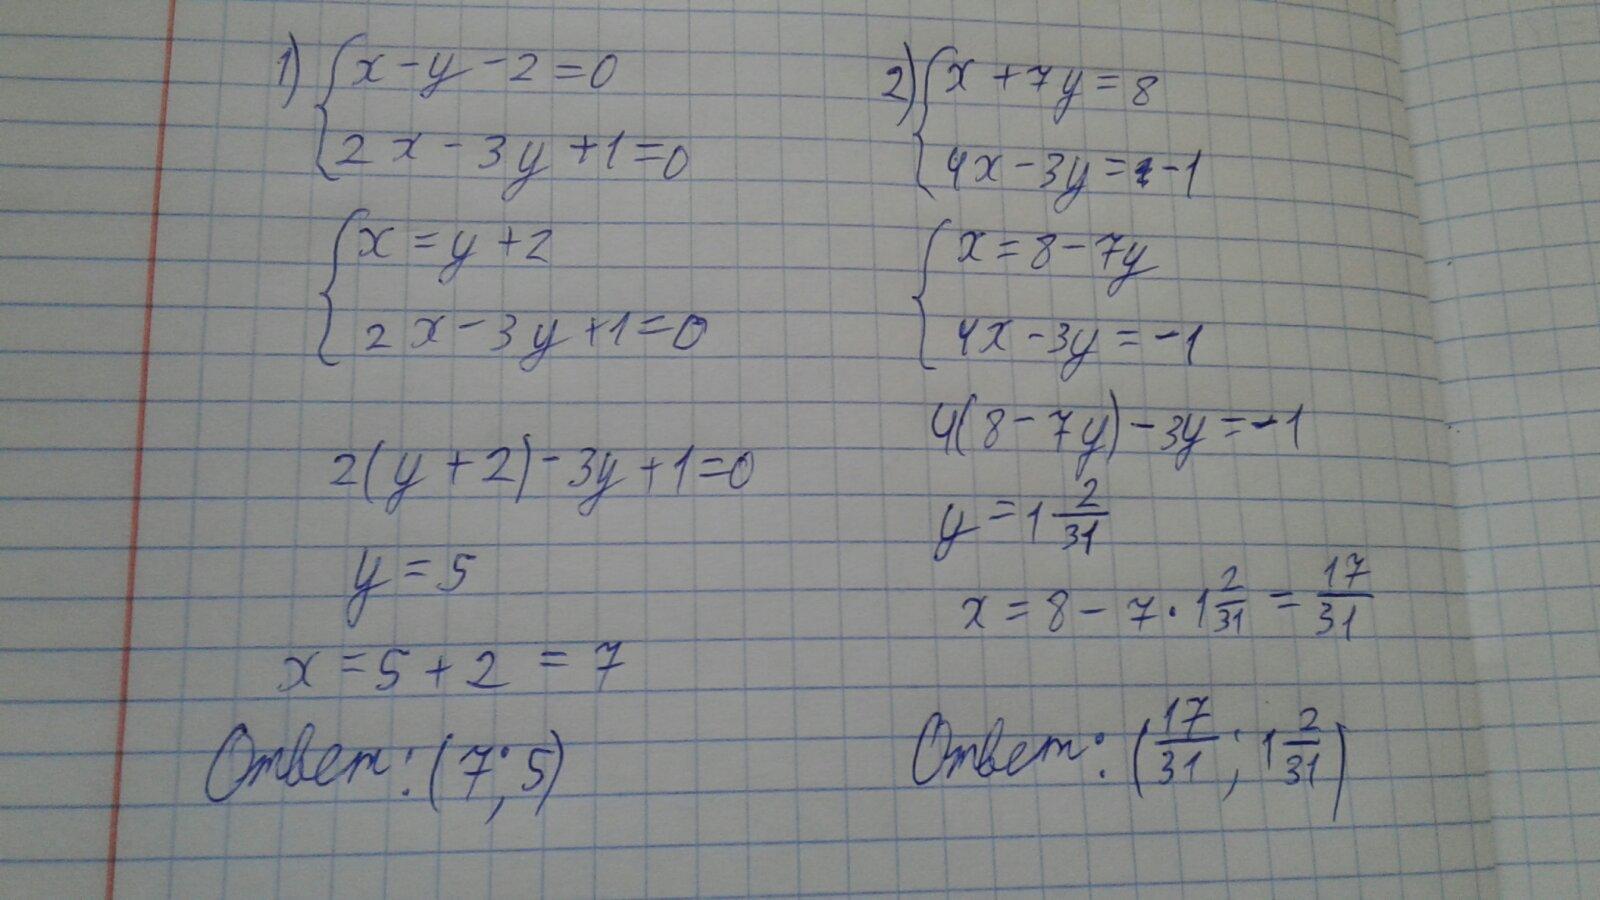 1) { x - y - 2 = 0
2x - 3y + 1 = 0
{ x = y + 2
2x - 3y + 1 = 0
2(y + 2) - 3y + 1 = 0
y = 5
x = 5 + 2 = 7
Ответ: (7; 5)
2) { x + 7y = 8
4x - 3y = -1
{ x = 8 - 7y
4x - 3y = -1
4(8 - 7y) - 3y = -1
y = 1 2/31
x = 8 - 7 · 1 2/31 = 17/31
Ответ: (17/31; 1 2/31)